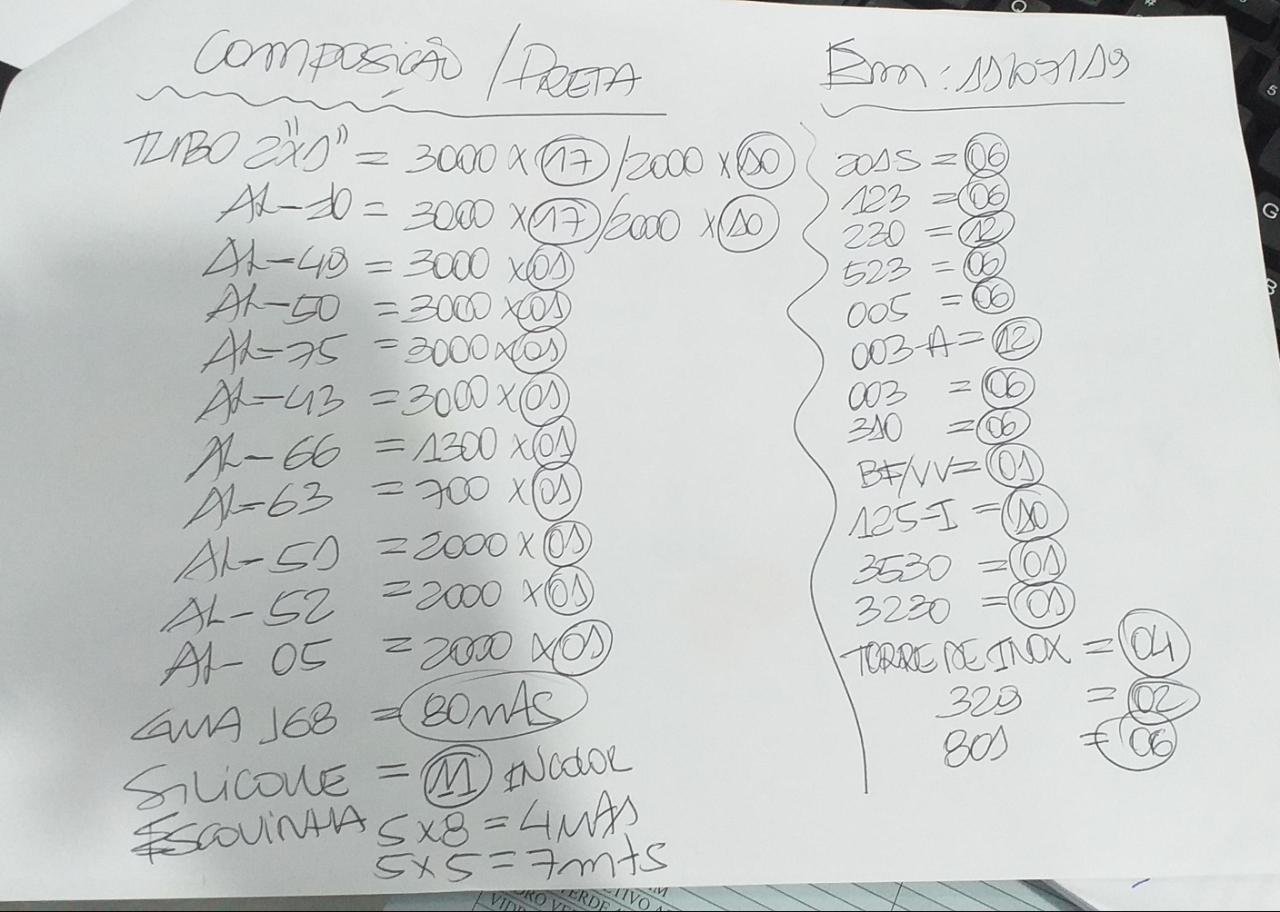 COMPOSIÇÃO / PRETA
TUBO 2"x1" = 3000 x 17 / 2000 x 10
AL-10 = 3000 x 17 / 2000 x 10
AL-49 = 3000 x 01
AL-50 = 3000 x 01
AL-75 = 3000 x 01
AL-43 = 3000 x 01
AL-66 = 1300 x 01
AL-63 = 700 x 01
AL-51 = 2000 x 01
AL-52 = 2000 x 01
AL-05 = 2000 x 01
168 = 80 mts
SILICONE = 11 INCOLOR
ESCOVINHA 5x8 = 4 mts
5x5 = 7 mts
Em: 11/07/19
201S = 06
123 = 06
230 = 12
523 = 06
005 = 06
003-A = 12
003 = 06
310 = 06
= 01
125-I = 10
3530 = 01
3230 = 01
TORRE DE INOX = 04
329 = 02
801 = 06